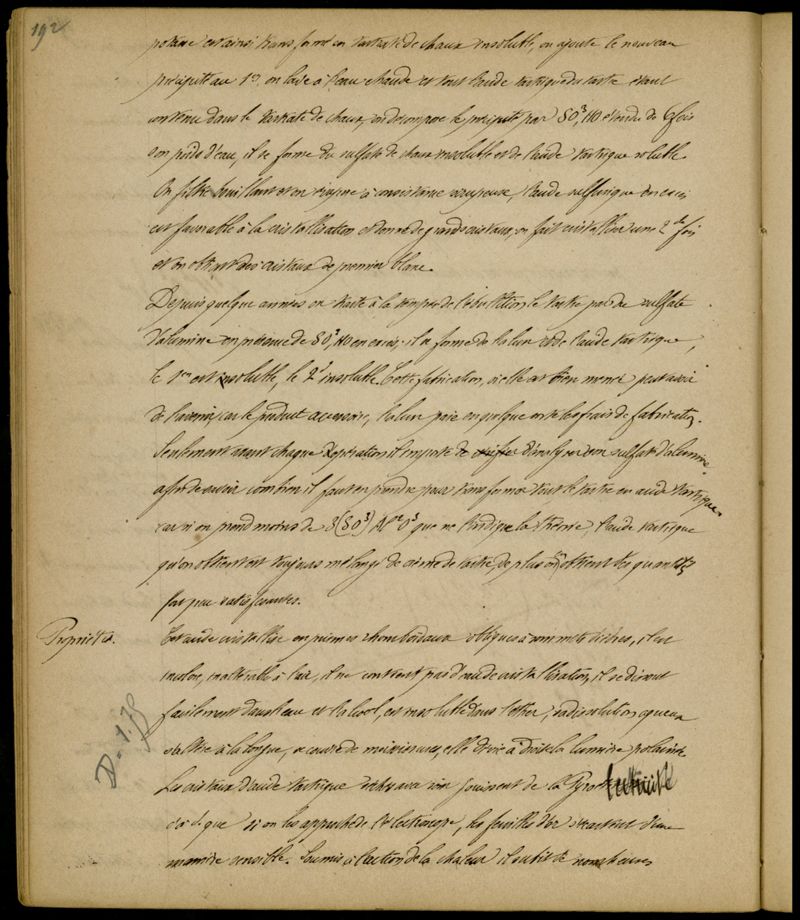 192
potasse est ainsi transformé en tartrate de chaux insoluble, on ajoute le nouveau
précipité au 1er, on lave à l'eau chaude et tout l'acide tartrique du tartre étant
contenu dans le tartrate de chaux, on décompose le précipité par SO³,HO étendu de 6 fois
son poids d'eau, il se forme du sulfate de chaux insoluble et de l'acide tartrique soluble.
On filtre bouillant et on évapore à consistance sirupeuse, l'acide sulfurique en excès
est favorable à la cristallisation et donne de grands cristaux, on fait cristalliser une 2de fois
et on obtient des cristaux de premier blanc.
Depuis quelque années on traite à la température de l'ébullition le tartre par du sulfate
d'alumine en présence de SO³,HO en excès; il se forme de l'alun et de l'acide tartrique,
le 1er est insoluble, le 2e insoluble. Cette fabrication, si elle est bien menée peut avoir
de l'avenir, car le produit accessoire, l'alun paie en quelque sorte les frais de fabrication.
Seulement avant chaque opération il importe de d'analyser son sulfate d'alumine
afin de savoir combien il faut en prendre pour transformer tout le tartre en acide tartrique
car si on prend moins de 3(SO³)Al²O³ que ne l'indique la théorie, l'acide tartrique
qu'on obtient est toujours mélangé de crème de tartre, de plus on obtient des quantités
fort peu satisfaisantes.
Propriétés.
Cet acide cristallise en prismes rhomboïdaux obliques à sommets dièdres, il est
incolore, inaltérable à l'air, il ne contient pas d'eau de cristallisation, il se dissout
facilement dans l'eau et l'alcool, est insoluble dans l'éther; sa dissolution aqueuse
s'altère à la longue, se couvre de moisissures, elle dévie à droite la lumière polarisée
D = 1.75
Les cristaux d'acide tartrique jouissent de la Pyroélectricité
c'à d que si on les approche de l'électroscope, les feuilles d'or s'écartent d'une
manière sensible. Soumis à l'action de la chaleur il subit de nombreuses